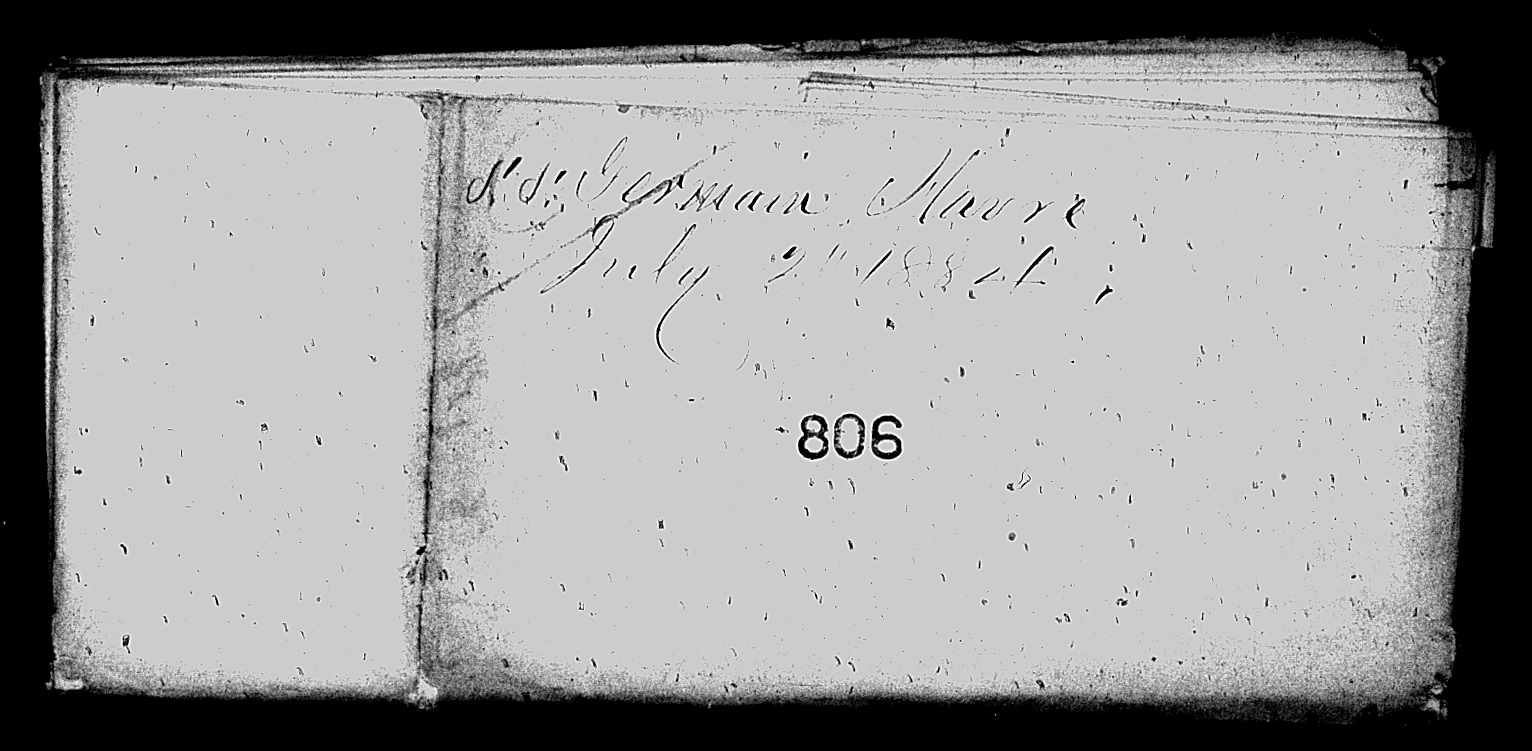 S.S. Germain Havre
July 2" 1884
806